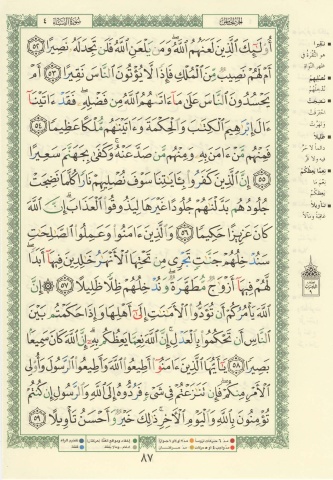 سورة النساء ٤
الجزء الخامس
أُو۟لَٰٓئِكَ ٱلَّذِينَ لَعَنَهُمُ ٱللَّهُ وَمَن يَلْعَنِ ٱللَّهُ فَلَن تَجِدَ لَهُۥ نَصِيرًا ٥٢
أَمْ لَهُمْ نَصِيبٌ مِّنَ ٱلْمُلْكِ فَإِذًا لَّا يُؤْتُونَ ٱلنَّاسَ نَقِيرًا ٥٣ أَمْ
يَحْسُدُونَ ٱلنَّاسَ عَلَىٰ مَآ ءَاتَىٰهُمُ ٱللَّهُ مِن فَضْلِهِۦ فَقَدْ ءَاتَيْنَآ
ءَالَ إِبْرَٰهِيمَ ٱلْكِتَٰبَ وَٱلْحِكْمَةَ وَءَاتَيْنَٰهُم مُّلْكًا عَظِيمًا ٥٤
فَمِنْهُم مَّنْ ءَامَنَ بِهِۦ وَمِنْهُم مَّن صَدَّ عَنْهُ وَكَفَىٰ بِجَهَنَّمَ سَعِيرًا
٥٥ إِنَّ ٱلَّذِينَ كَفَرُوا۟ بِـَٔايَٰتِنَا سَوْفَ نُصْلِيهِمْ نَارًا كُلَّمَا نَضِجَتْ
جُلُودُهُم بَدَّلْنَٰهُمْ جُلُودًا غَيْرَهَا لِيَذُوقُوا۟ ٱلْعَذَابَ إِنَّ ٱللَّهَ
كَانَ عَزِيزًا حَكِيمًا ٥٦ وَٱلَّذِينَ ءَامَنُوا۟ وَعَمِلُوا۟ ٱلصَّٰلِحَٰتِ
سَنُدْخِلُهُمْ جَنَّٰتٍ تَجْرِى مِن تَحْتِهَا ٱلْأَنْهَٰرُ خَٰلِدِينَ فِيهَآ أَبَدًا
لَّهُمْ فِيهَآ أَزْوَٰجٌ مُّطَهَّرَةٌ وَنُدْخِلُهُمْ ظِلًّا ظَلِيلًا ٥٧ إِنَّ
ٱللَّهَ يَأْمُرُكُمْ أَن تُؤَدُّوا۟ ٱلْأَمَٰنَٰتِ إِلَىٰٓ أَهْلِهَا وَإِذَا حَكَمْتُم بَيْنَ
ٱلنَّاسِ أَن تَحْكُمُوا۟ بِٱلْعَدْلِ إِنَّ ٱللَّهَ نِعِمَّا يَعِظُكُم بِهِۦٓ إِنَّ ٱللَّهَ كَانَ سَمِيعًۢا
بَصِيرًا ٥٨ يَٰٓأَيُّهَا ٱلَّذِينَ ءَامَنُوٓا۟ أَطِيعُوا۟ ٱللَّهَ وَأَطِيعُوا۟ ٱلرَّسُولَ وَأُو۟لِى
ٱلْأَمْرِ مِنكُمْ فَإِن تَنَٰزَعْتُمْ فِى شَىْءٍ فَرُدُّوهُ إِلَى ٱللَّهِ وَٱلرَّسُولِ إِن كُنتُمْ
تُؤْمِنُونَ بِٱللَّهِ وَٱلْيَوْمِ ٱلْءَاخِرِ ذَٰلِكَ خَيْرٌ وَأَحْسَنُ تَأْوِيلًا ٥٩
٨٧